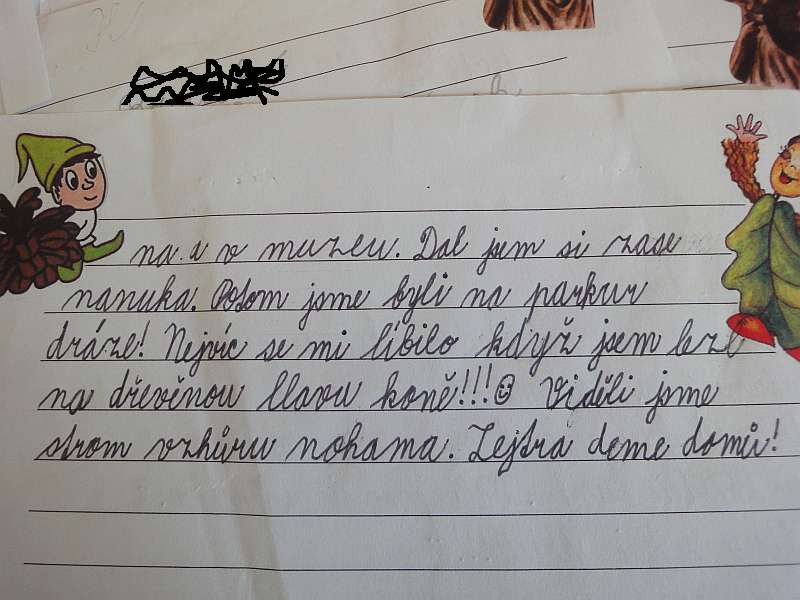 na a v muzeu. Dal jsem si zase
nanuka. Potom jsme byli na parkur
dráze! Nejvíc se mi líbilo když jsem lezl
na dřevěnou hlavu koně!!!☺ Viděli jsme
strom vzhůru nohama. Zejtra deme domů!